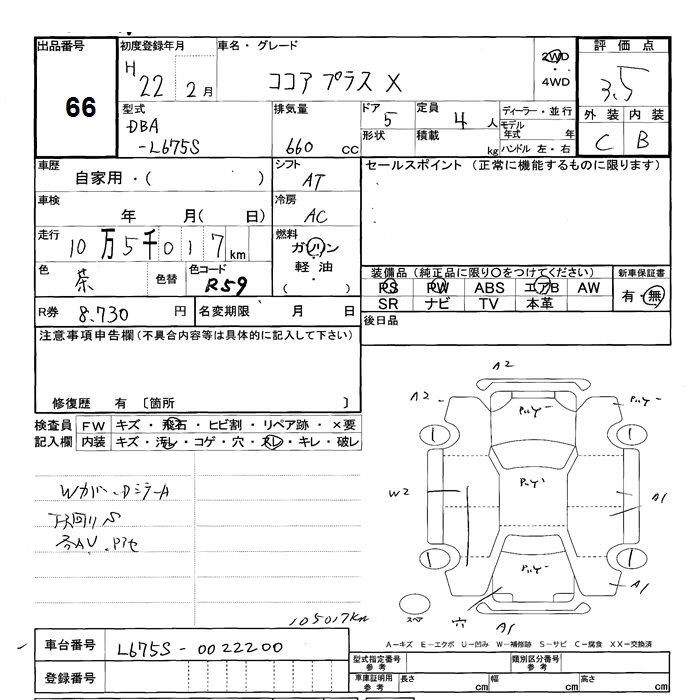 出品番号
66
初度登録年月
H 22 2月
車名・グレード
ココア プラス X
2WD
・
4WD
評価点
3.5
外装 内装
C B
型式
DBA
-L675S
排気量
660 cc
ドア 5
形状
定員 4 人
積載 kg
ディーラー・並行
モデル
年式 年
ハンドル 左・右
車歴
自家用・( )
シフト
AT
セールスポイント (正常に機能するものに限ります)
車検
年 月( 日)
冷房
AC
走行
10万5千017km
燃料
ガソリン
軽油
( ・ )
色
茶
色替
色コード
R59
装備品(純正品に限り○をつけてください)
PS PW ABS エアB AW
SR ナビ TV 本革
新車保証書
有・無
R券 8.730 円
名変期限 月 日
後日品
注意事項申告欄(不具合内容等は具体的に記入して下さい)
修復歴 有 〔箇所 〕
検査員
記入欄
FW キズ・飛石・ヒビ割・リペア跡・×要
内装 キズ・汚レ・コゲ・穴・スレ・キレ・破レ
Wカバー、DミラーA
下回りS
105017km
A2
A2
W2
A1
A1
A1
穴
スペア
A−キズ E−エクボ U−凹み W−補修跡 S−サビ C−腐食 XX−交換済
車台番号
L675S-0022200
登録番号
型式指定番号
参考
類別区分番号
参考
車庫証明用
参考
長さ cm
幅 cm
高さ cm